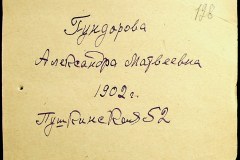 138
Гундорова
Александра Матвеевна
1902 г.
Пушкинская 52